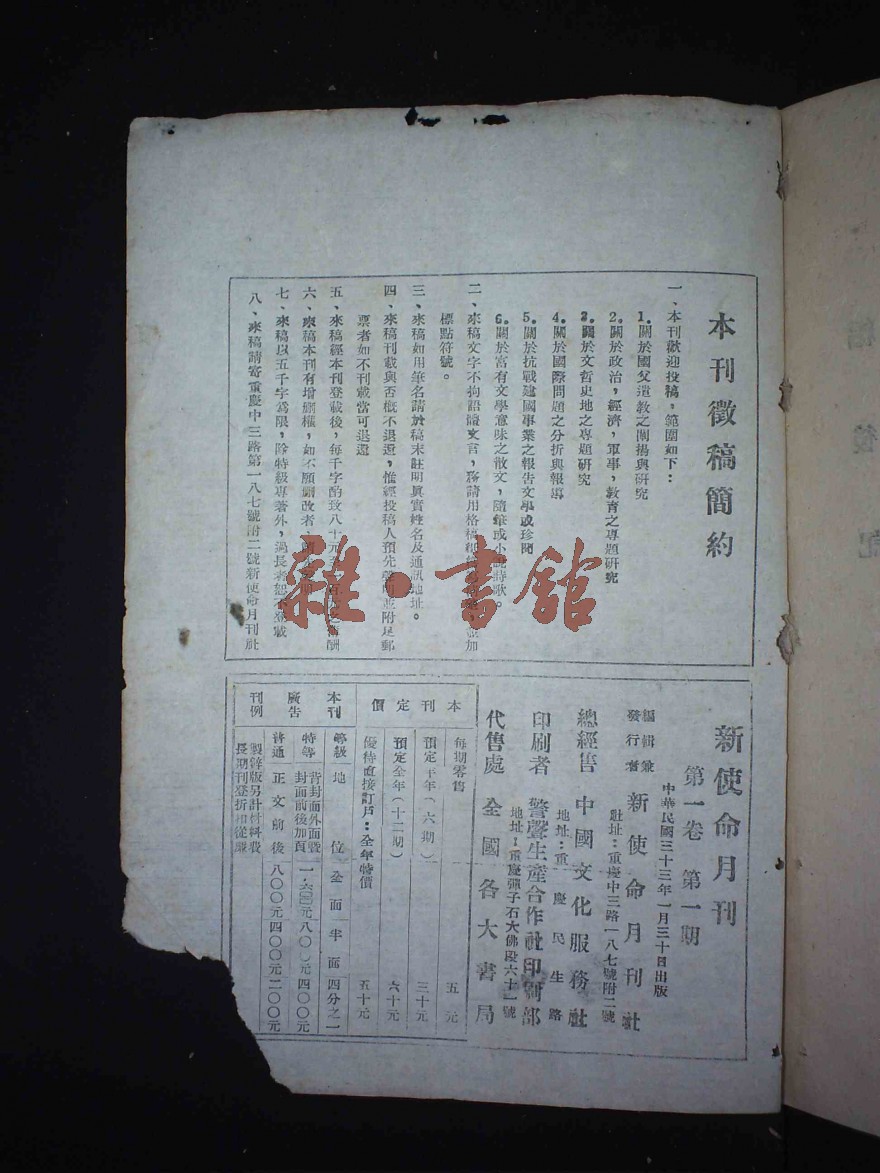 本刊徵稿簡約
一、本刊歡迎投稿，範圍如下：
1.關於國父遺敎之闡揚與研究
2.關於政治，經濟，軍事，敎育之專題研究
3.關於文哲史地之專題研究
4.關於國際問題之分折與報導
5.關於抗戰建國事業之報吿文學或珍聞
6.關於富有文學意味之散文，隨筆或小說詩歌。
二、來稿文字不拘語體文言，務請用格稿
加
標點符號。
三、來稿如用筆名請於稿末註明眞實姓名及通訊地址。
四、來稿刊載與否槪不退還，惟經投稿人預先聲明並附足郵
票者如不刊載當可退還
五、來稿經本刊登載後，每千字酌致八十元
酬
六、來稿本刊有增刪權，如不願刪改者
七、來稿以五千字爲限，除特級專著外，過長者恕不登載
八、來稿請寄重慶中三路第一八七號附二號新使命月刊社
雜·書館
新使命月刊
第一卷 第一期
中華民國三十三年一月三十日出版
編輯兼發行者 新使命月刊社
社址：重慶中三路一八七號附二號
總經售 中國文化服務社
地址：重慶民生路
印刷者 警聲生產合作社印刷部
地址：重慶彈子石大佛段六十一號
代售處 全國各大書局
本刊定價
每期零售 五元
預定半年（六期） 三十元
預定全年（十二期） 六十元
優待直接訂戶：全年特價 五十元
本刊廣告刊例
等級 地位 全面 半面 四分之一
特等 背封面外面暨封面前後加頁 一‧六〇〇元 八〇〇元 四〇〇元
普通 正文前後 八〇〇元 四〇〇元 二〇〇元
製鋅版另計材料費
長期刊登折扣從廉
後
記